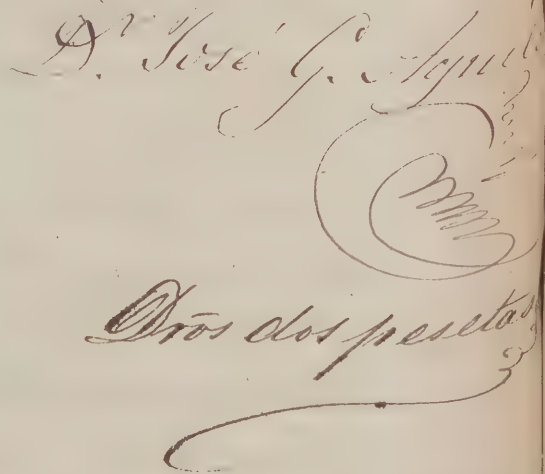 Dr. José G. Aguil
Drōs dos pesetas